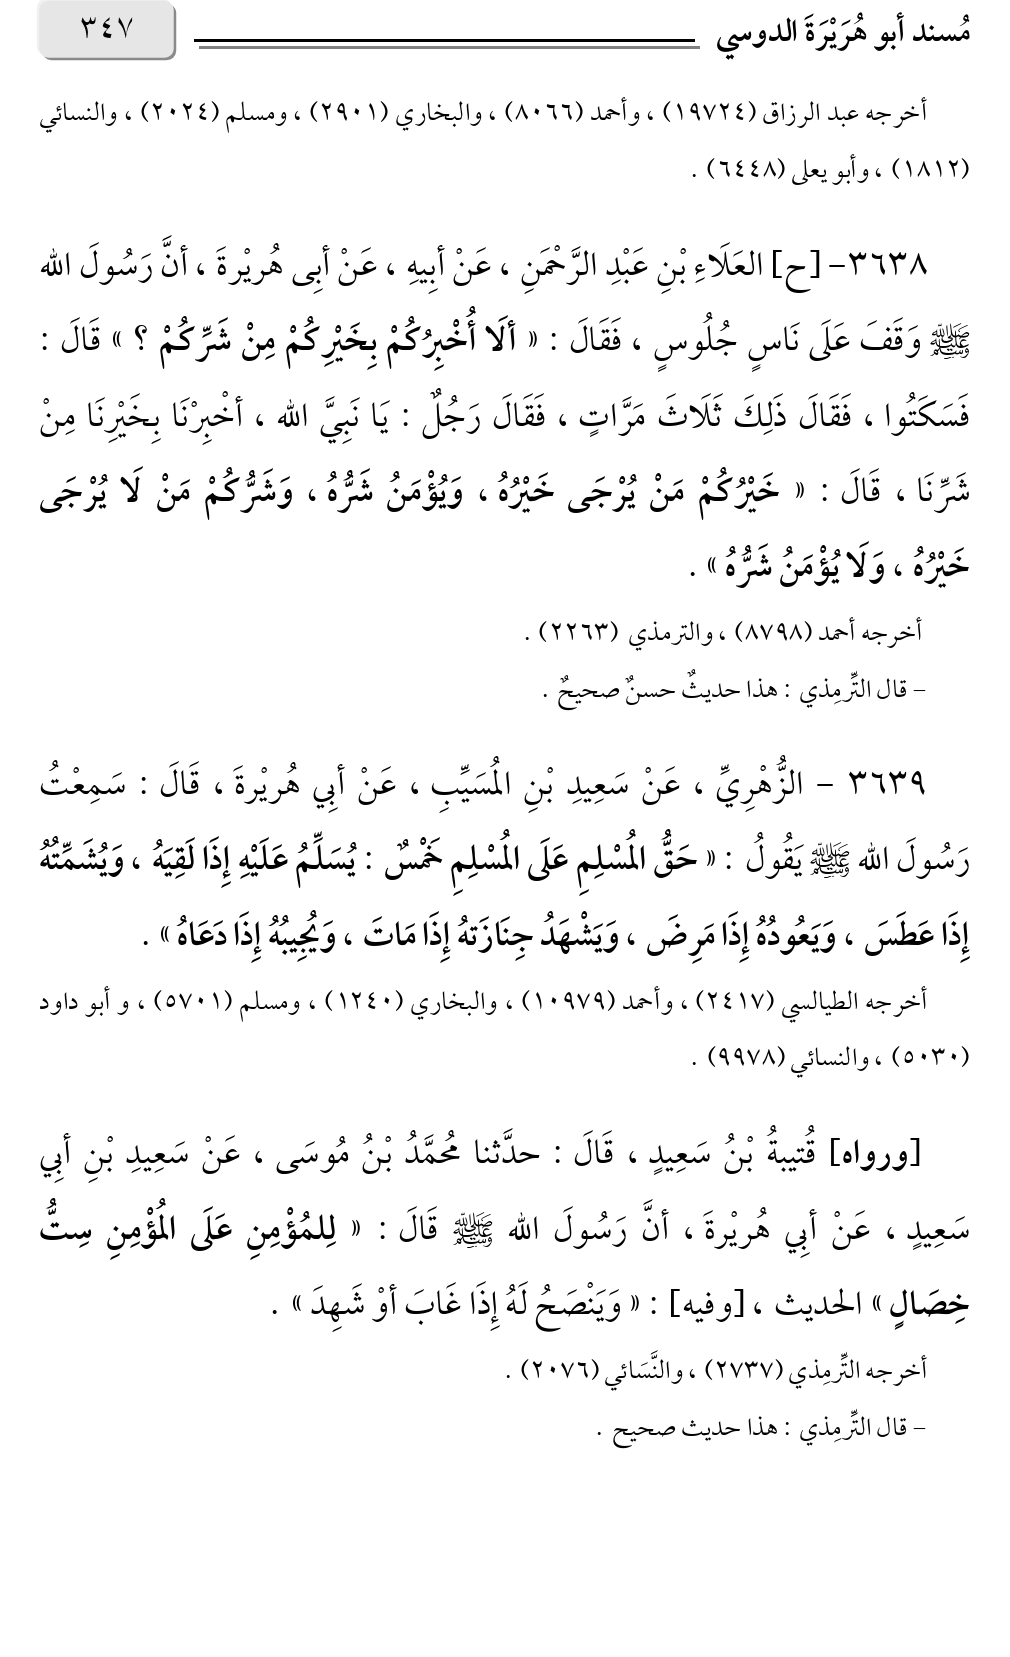 مُسند أبو هُرَيْرَةَ الدوسي ٣٤٧
أخرجه عبد الرزاق (١٩٧٢٤) ، وأحمد (٨٠٦٦) ، والبخاري (٢٩٠١) ، ومسلم (٢٠٢٤) ، والنسائي
(١٨١٢) ، وأبو يعلى (٦٤٤٨) .
٣٦٣٨- [ح] العَلَاءِ بْنِ عَبْدِ الرَّحْمَنِ ، عَنْ أَبِيهِ ، عَنْ أَبِى هُريْرةَ ، أنَّ رَسُولَ الله
ﷺ وَقَفَ عَلَى نَاسٍ جُلُوسٍ ، فَقَالَ : « ألَا أُخْبِرُكُمْ بِخَيْرِكُمْ مِنْ شَرِّكُمْ ؟ » قَالَ :
فَسَكَتُوا ، فَقَالَ ذَلِكَ ثَلَاثَ مَرَّاتٍ ، فَقَالَ رَجُلٌ : يَا نَبِيَّ الله ، أخْبِرْنَا بِخَيْرِنَا مِنْ
شَرِّنَا ، قَالَ : « خَيْرُكُمْ مَنْ يُرْجَى خَيْرُهُ ، وَيُؤْمَنُ شَرُّهُ ، وَشَرُّكُمْ مَنْ لَا يُرْجَى
خَيْرُهُ ، وَلَا يُؤْمَنُ شَرُّهُ » .
أخرجه أحمد (٨٧٩٨) ، والترمذي (٢٢٦٣) .
– قال التِّرمِذي : هذا حديثٌ حسنٌ صحيحٌ .
٣٦٣٩ – الزُّهْرِيِّ ، عَنْ سَعِيدِ بْنِ المُسَيِّبِ ، عَنْ أبِي هُريْرةَ ، قَالَ : سَمِعْتُ
رَسُولَ الله ﷺ يَقُولُ : « حَقُّ المُسْلِمِ عَلَى المُسْلِمِ خَمْسٌ : يُسَلِّمُ عَلَيْهِ إِذَا لَقِيَهُ ، وَيُشَمِّتُهُ
إِذَا عَطَسَ ، وَيَعُودُهُ إِذَا مَرِضَ ، وَيَشْهَدُ جِنَازَتهُ إِذَا مَاتَ ، وَيُجِيبُهُ إِذَا دَعَاهُ » .
أخرجه الطيالسي (٢٤١٧) ، وأحمد (١٠٩٧٩) ، والبخاري (١٢٤٠) ، ومسلم (٥٧٠١) ، و أبو داود
(٥٠٣٠) ، والنسائي (٩٩٧٨) .
[ورواه] قُتيبةُ بْنُ سَعِيدٍ ، قَالَ : حدَّثنا مُحمَّدُ بْنُ مُوسَى ، عَنْ سَعِيدِ بْنِ أبِي
سَعِيدٍ ، عَنْ أبِي هُريْرةَ ، أنَّ رَسُولَ الله ﷺ قَالَ : « لِلمُؤْمِنِ عَلَى المُؤْمِنِ سِتُّ
خِصَالٍ » الحديث ، [وفيه] : « وَيَنْصَحُ لَهُ إِذَا غَابَ أوْ شَهِدَ » .
أخرجه التِّرمِذي (٢٧٣٧) ، والنَّسَائي (٢٠٧٦) .
– قال التِّرمِذي : هذا حديث صحيح .